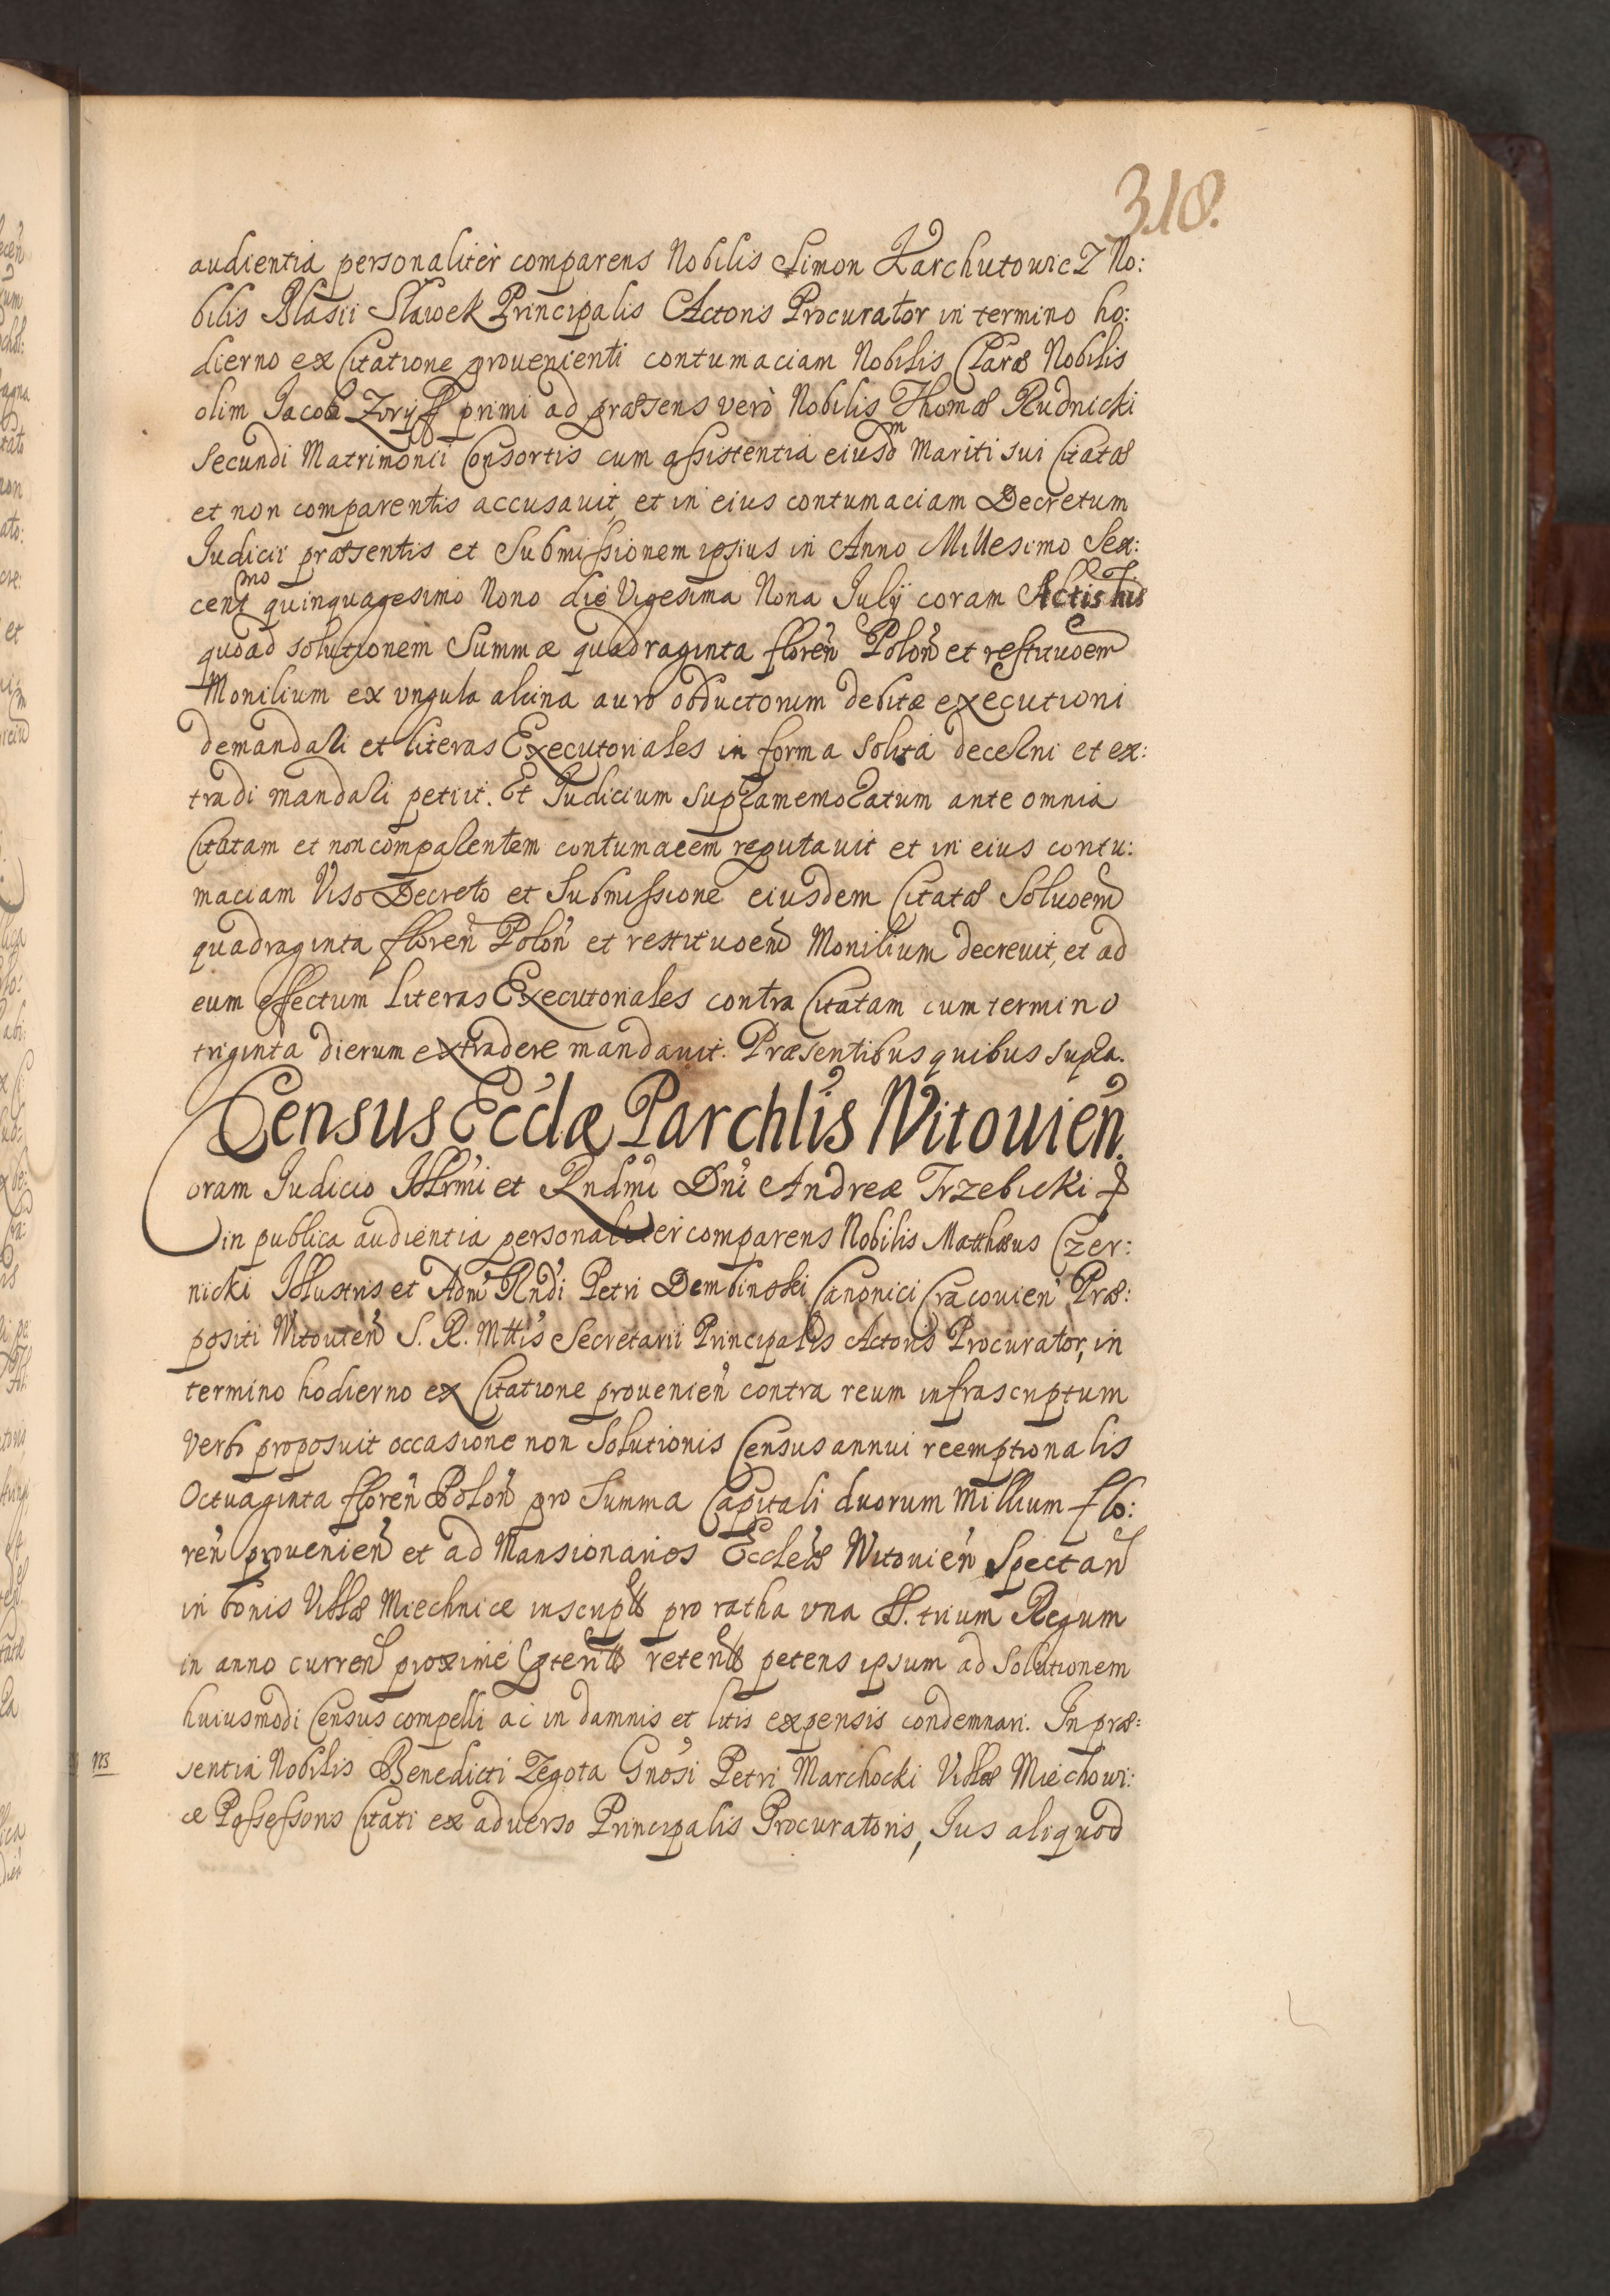 318.
audientia personaliter comparens Nobilis Simon Karchutowicz No:
bilis Blasii Sławek Principalis Actoris Procurator in termino ho:
dierno ex Citatione provenienti contumaciam Nobilis Claræ Nobilis
olim Jacobi primi ad præsens verò Nobilis Thomæ Rudnicki
Secundi Matrimonii Consortis cum assistentia eiusdm Mariti sui Citatæ
et non comparentis accusavit, et in eius contumaciam Decretum
Judicii præsentis et Submissionem ipsius in Anno Millesimo Sex:
centmo quinquagesimo Nono die Vigesima Nona July coram Actis his
quoad solutionem Summæ quadraginta floreñ Poloñ et restituoem
Monilium ex vngula alcina auro obductorum debitæ executioni
demandari et literas Executoriales in forma solita decerni et ex:
tradi mandari petiit. Et Judicium supramemoratum ante omnia
Citatam et non comparentem contumacem reputavit et in eius contu:
maciam Viso Decreto et Submissione eiusdem Citatæ Soluoem
quadraginta floreñ Poloñ et restituoem Monilium decrevit, et ad
eum effectum Literas Executoriales contra Citatam cum termino
triginta dierum extradere mandavit. Præsentibus quibus supra.
Census Ecclæ Parchlis Witouień.
Coram Judicio Illrmi et Rndmi Dni Andreæ Trzebicki
in publica audientia personaliter comparens Nobilis Matthæus Czer:
nicki Illustris et Adm Rndi Petri Dembinski Canonici Cracouień Præ:
positi Witouień S. R. Mttis Secretarii Principalis Actoris Procurator, in
termino hodierno ex Citatione prouenień contra reum infrascriptum
Verbo proposuit occasione non Solutionis Census annui reemptionalis
Octuaginta floreñ Poloñ pro Summa Capitali duorum Millium flo:
reñ prouenień et ad Mansionarios Eccleæ Witouień Spectań
in bonis Villæ Miechnice pro ratha vna SS. trium Regum
in anno curreñ proxime petens ipsum ad Solutionem
huiusmodi Census compelli ac in damnis et litis expensis condemnari. In præ:
sentia Nobilis Benedicti Zegota Gnosi Petri Marchocki Villæ Miechowi:
ce Possessoris Citati ex adverso Principalis Procuratoris, Jus aliquod